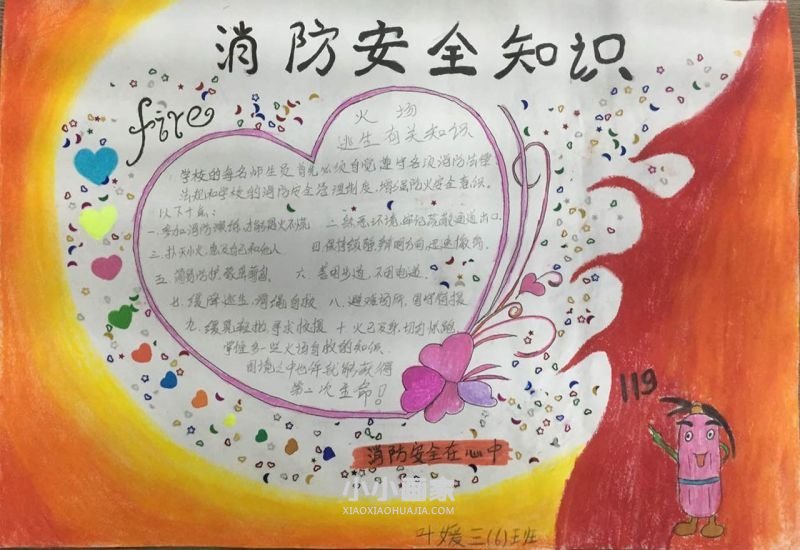 消防安全知识
fire
火场
逃生有关知识
学校的每名师生员首先必须自觉遵守各项消防法律
法规和学校的消防安全管理制度，增强防火安全意识。
以下十点：
一.参加消防演练，才能遇火不慌 二.熟悉环境，牢记疏散通道出口
三.扑灭小火，惠及自己和他人 四.保持镇静，辨明方向，迅速撤离
五.简易防护，蒙鼻匍匐 六.善用步道，不用电道
七.缓降逃生，滑绳自救 八.避难场所，固守待援
九.缓晃轻抛，寻求救援 十.火已及身，切勿惊跑
学些一些火场自救的知识
困境之中也许就能获得
第二次生命！
119
消防安全在心中
小小画家
XIAOXIAOHUAJIA.COM
叶媛 三(6)班